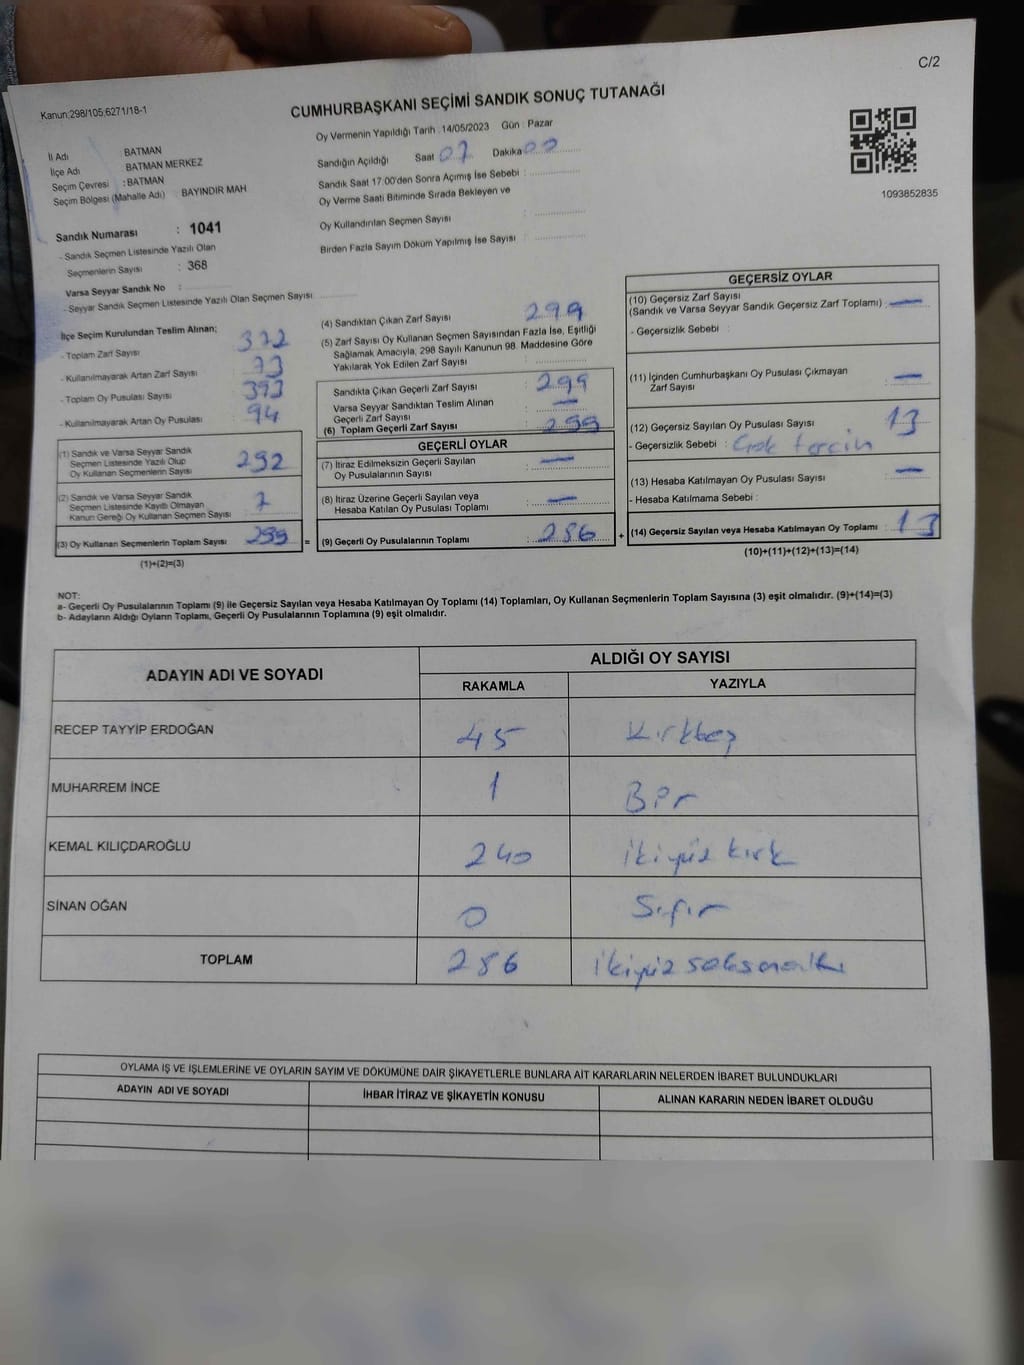 C/2
Kanun:298/105;6271/18-1
CUMHURBAŞKANI SEÇİMİ SANDIK SONUÇ TUTANAĞI
Oy Vermenin Yapıldığı Tarih :14/05/2023 Gün : Pazar
İl Adı BATMAN
İlçe Adı BATMAN MERKEZ
Seçim Çevresi : BATMAN
Seçim Bölgesi (Mahalle Adı) : BAYINDIR MAH
Sandığın Açıldığı Saat 07 Dakika 00
Sandık Saat 17:00'den Sonra Açımış İse Sebebi :
Oy Verme Saati Bitiminde Sırada Bekleyen ve
Oy Kullandırılan Seçmen Sayısı :
Birden Fazla Sayım Döküm Yapılmış İse Sayısı :
1093852835
Sandık Numarası : 1041
- Sandık Seçmen Listesinde Yazılı Olan
Seçmenlerin Sayısı : 368
Varsa Seyyar Sandık No :
- Seyyar Sandık Seçmen Listesinde Yazılı Olan Seçmen Sayısı :
İlçe Seçim Kurulundan Teslim Alınan;
- Toplam Zarf Sayısı : 372
- Kullanılmayarak Artan Zarf Sayısı : 73
- Toplam Oy Pusulası Sayısı : 393
- Kullanılmayarak Artan Oy Pusulası : 94
(1) Sandık ve Varsa Seyyar Sandık
Seçmen Listesinde Yazılı Olup
Oy Kullanan Seçmenlerin Sayısı : 292
(2) Sandık ve Varsa Seyyar Sandık
Seçmen Listesinde Kayıtlı Olmayan
Kanun Gereği Oy Kullanan Seçmen Sayısı : 7
(3) Oy Kullanan Seçmenlerin Toplam Sayısı : 299 =
(1)+(2)=(3)
(4) Sandıktan Çıkan Zarf Sayısı : 299
(5) Zarf Sayısı Oy Kullanan Seçmen Sayısından Fazla İse, Eşitliği
Sağlamak Amacıyla, 298 Sayılı Kanunun 98. Maddesine Göre
Yakılarak Yok Edilen Zarf Sayısı :
Sandıkta Çıkan Geçerli Zarf Sayısı : 299
Varsa Seyyar Sandıktan Teslim Alınan
Geçerli Zarf Sayısı : —
(6) Toplam Geçerli Zarf Sayısı : 299
GEÇERLİ OYLAR
(7) İtiraz Edilmeksizin Geçerli Sayılan
Oy Pusulalarının Sayısı : —
(8) İtiraz Üzerine Geçerli Sayılan veya
Hesaba Katılan Oy Pusulası Toplamı : —
(9) Geçerli Oy Pusulalarının Toplamı : 286 +
GEÇERSİZ OYLAR
(10) Geçersiz Zarf Sayısı
(Sandık ve Varsa Seyyar Sandık Geçersiz Zarf Toplamı) : —
- Geçersizlik Sebebi :
(11) İçinden Cumhurbaşkanı Oy Pusulası Çıkmayan
Zarf Sayısı : —
(12) Geçersiz Sayılan Oy Pusulası Sayısı : 13
- Geçersizlik Sebebi : Çok tercih
(13) Hesaba Katılmayan Oy Pusulası Sayısı : —
- Hesaba Katılmama Sebebi :
(14) Geçersiz Sayılan veya Hesaba Katılmayan Oy Toplamı : 13
(10)+(11)+(12)+(13)=(14)
NOT:
a- Geçerli Oy Pusulalarının Toplamı (9) ile Geçersiz Sayılan veya Hesaba Katılmayan Oy Toplamı (14) Toplamları, Oy Kullanan Seçmenlerin Toplam Sayısına (3) eşit olmalıdır. (9)+(14)=(3)
b- Adayların Aldığı Oyların Toplamı, Geçerli Oy Pusulalarının Toplamına (9) eşit olmalıdır.
ADAYIN ADI VE SOYADI ALDIĞI OY SAYISI
RAKAMLA YAZIYLA
RECEP TAYYİP ERDOĞAN 45 Kırkbeş
MUHARREM İNCE 1 Bir
KEMAL KILIÇDAROĞLU 240 ikiyüz kırk
SİNAN OĞAN 0 Sıfır
TOPLAM 286 ikiyüz seksenaltı
OYLAMA İŞ VE İŞLEMLERİNE VE OYLARIN SAYIM VE DÖKÜMÜNE DAİR ŞİKAYETLERLE BUNLARA AİT KARARLARIN NELERDEN İBARET BULUNDUKLARI
ADAYIN ADI VE SOYADI İHBAR İTİRAZ VE ŞİKAYETİN KONUSU ALINAN KARARIN NEDEN İBARET OLDUĞU